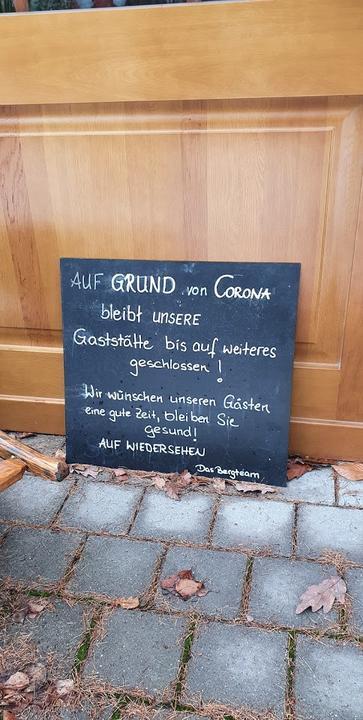 AUF GRUND von CORONA
bleibt UNSERE
Gaststätte bis auf weiteres
geschlossen !
Wir wünschen unseren Gästen
eine gute Zeit, bleiben Sie
gesund!
AUF WIEDERSEHEN
Das Bergteam